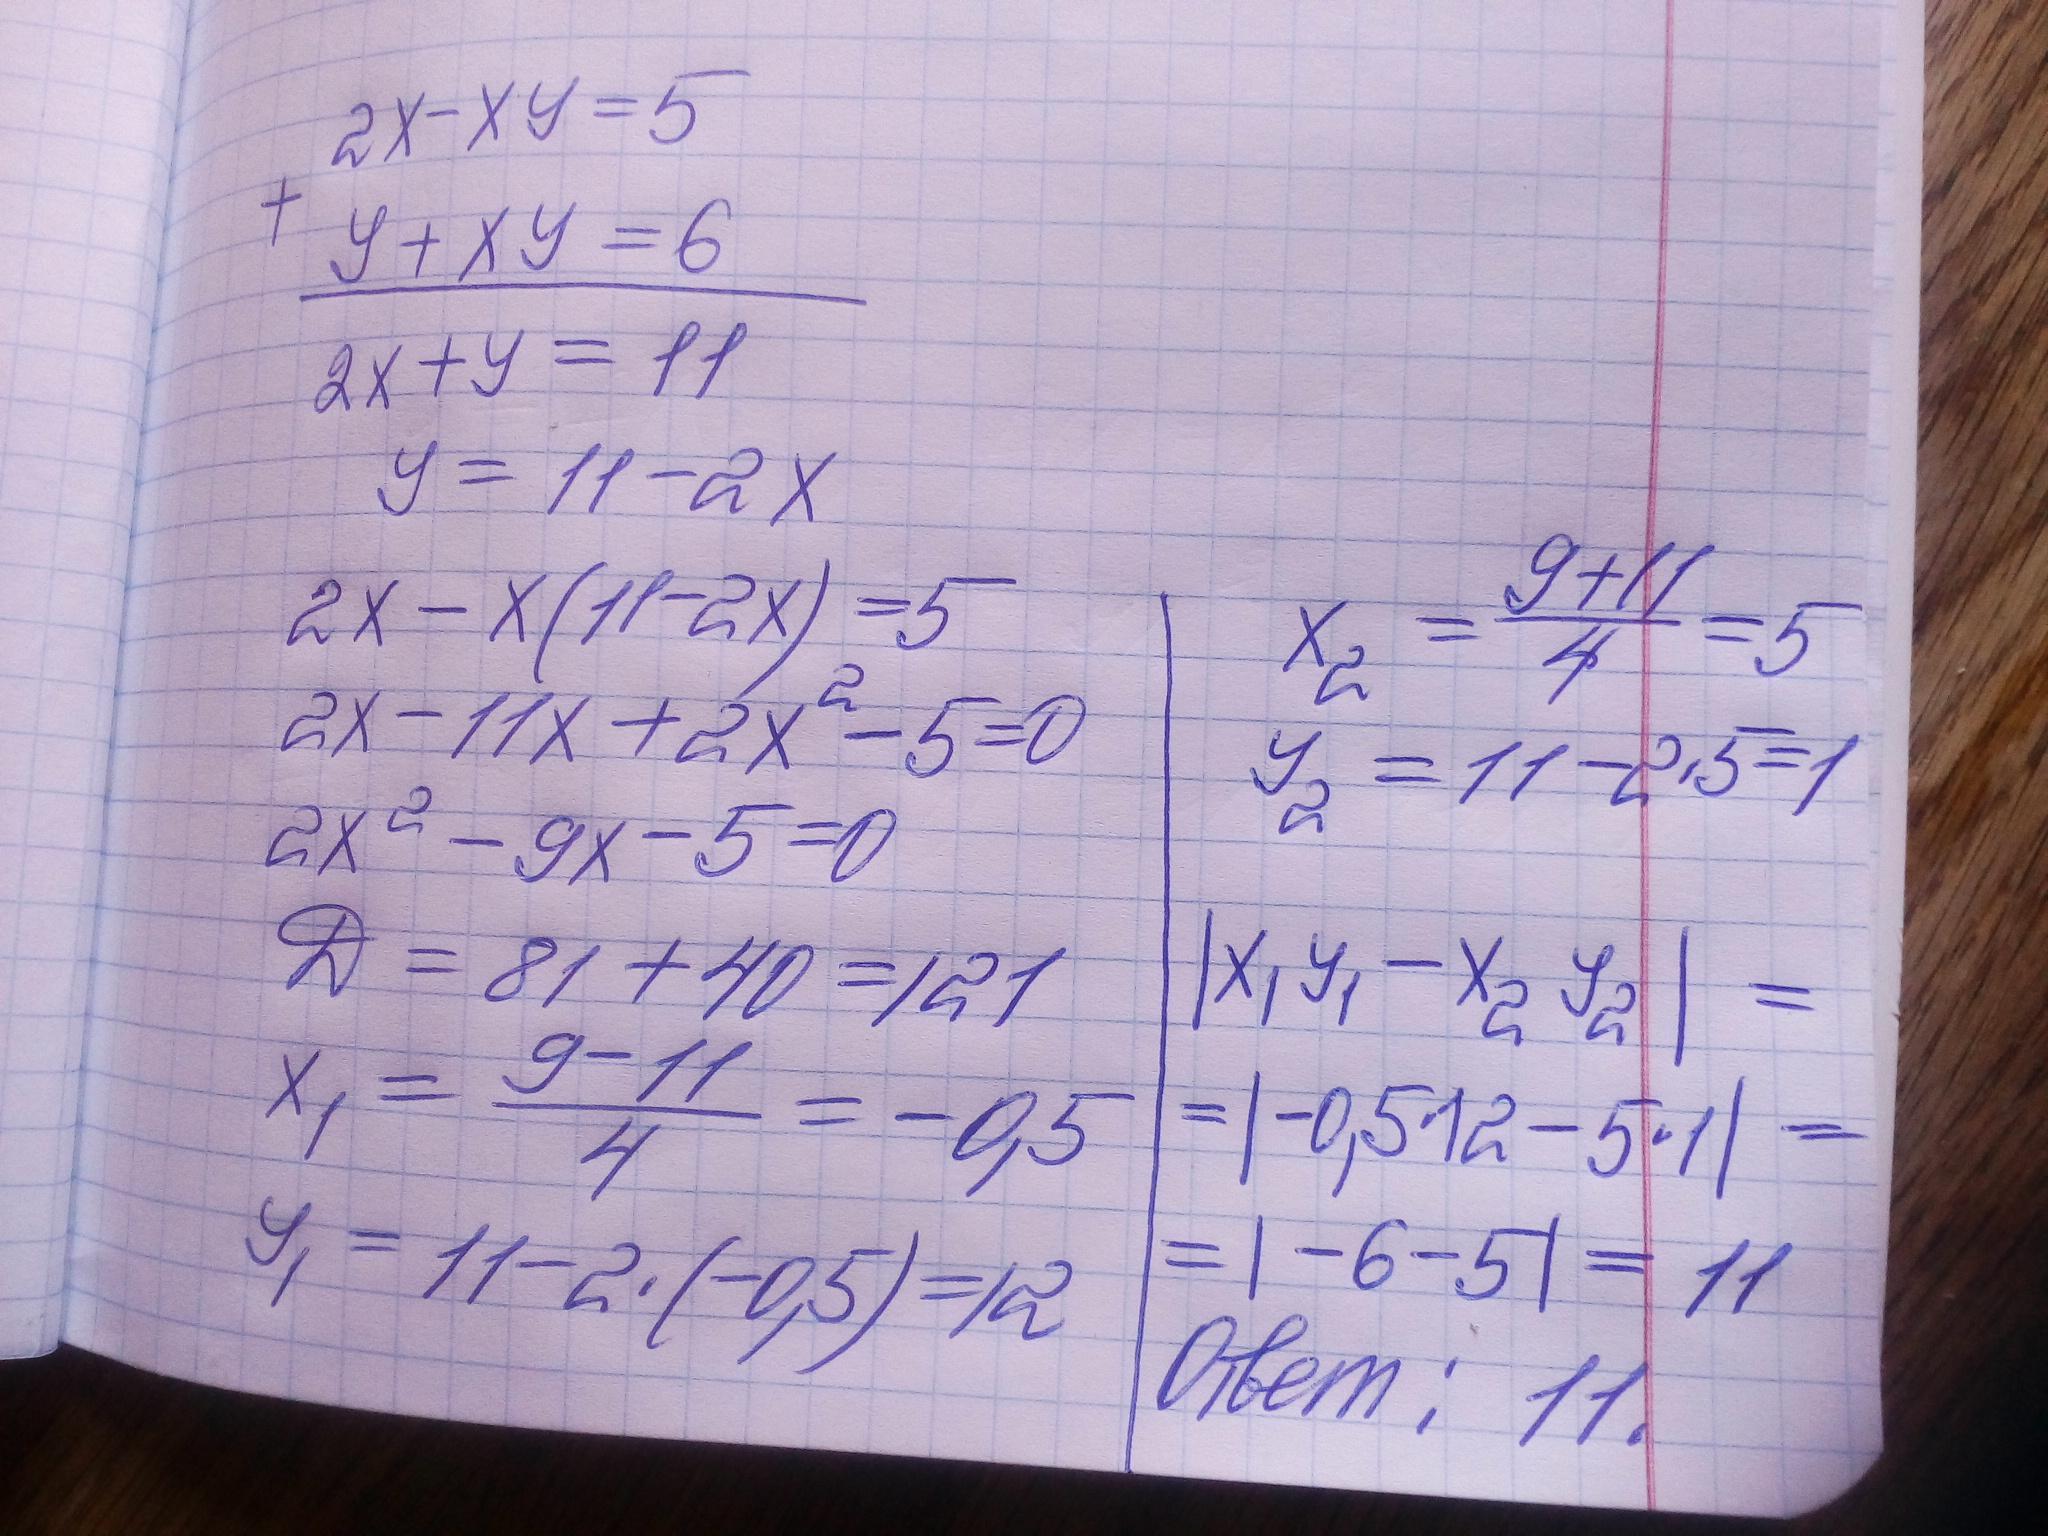 2x-xy=5
+
y+xy=6
2x+y=11
y=11-2x
2x-x(11-2x)=5
2x-11x+2x²-5=0
2x²-9x-5=0
D=81+40=121
x₁=\frac{9-11}{4}=-0,5
y₁=11-2·(-0,5)=12
x₂=\frac{9+11}{4}=5
y₂=11-2·5=1
|x₁y₁-x₂y₂|=
=|-0,5·12-5·1|=
=|-6-5|=11
Ответ: 11.